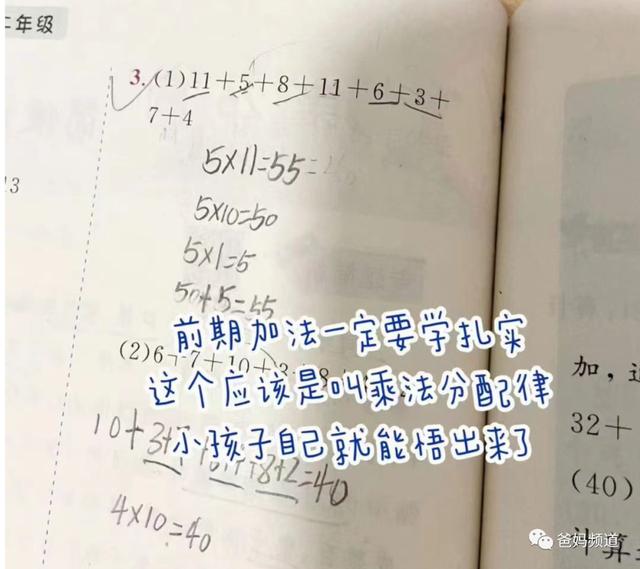 二年级
3.(1)11+5+8+11+6+3+
7+4
13
5×11=55
5×10=50
5×1=5
50+5=55
前期加法一定要学扎实
(2)6+7+10+3
这个应该是叫乘法分配律
加，
32+
小孩子自己就能悟出来了
10+3+
+8+2=40
(40)
4×10=40
计算
爸妈频道